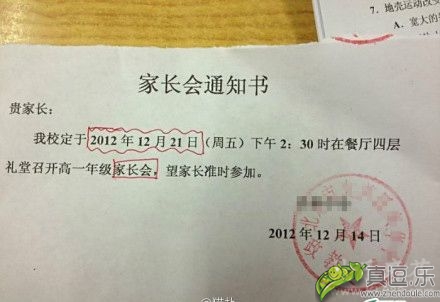 7．地壳运动改变
A．宽大的
家长会通知书
贵家长：
我校定于2012年12月21日（周五）下午2：30时在餐厅四层
礼堂召开高一年级家长会，望家长准时参加。
2012年12月14日
真逗.乐
www.zhendoule.com
@猫扑